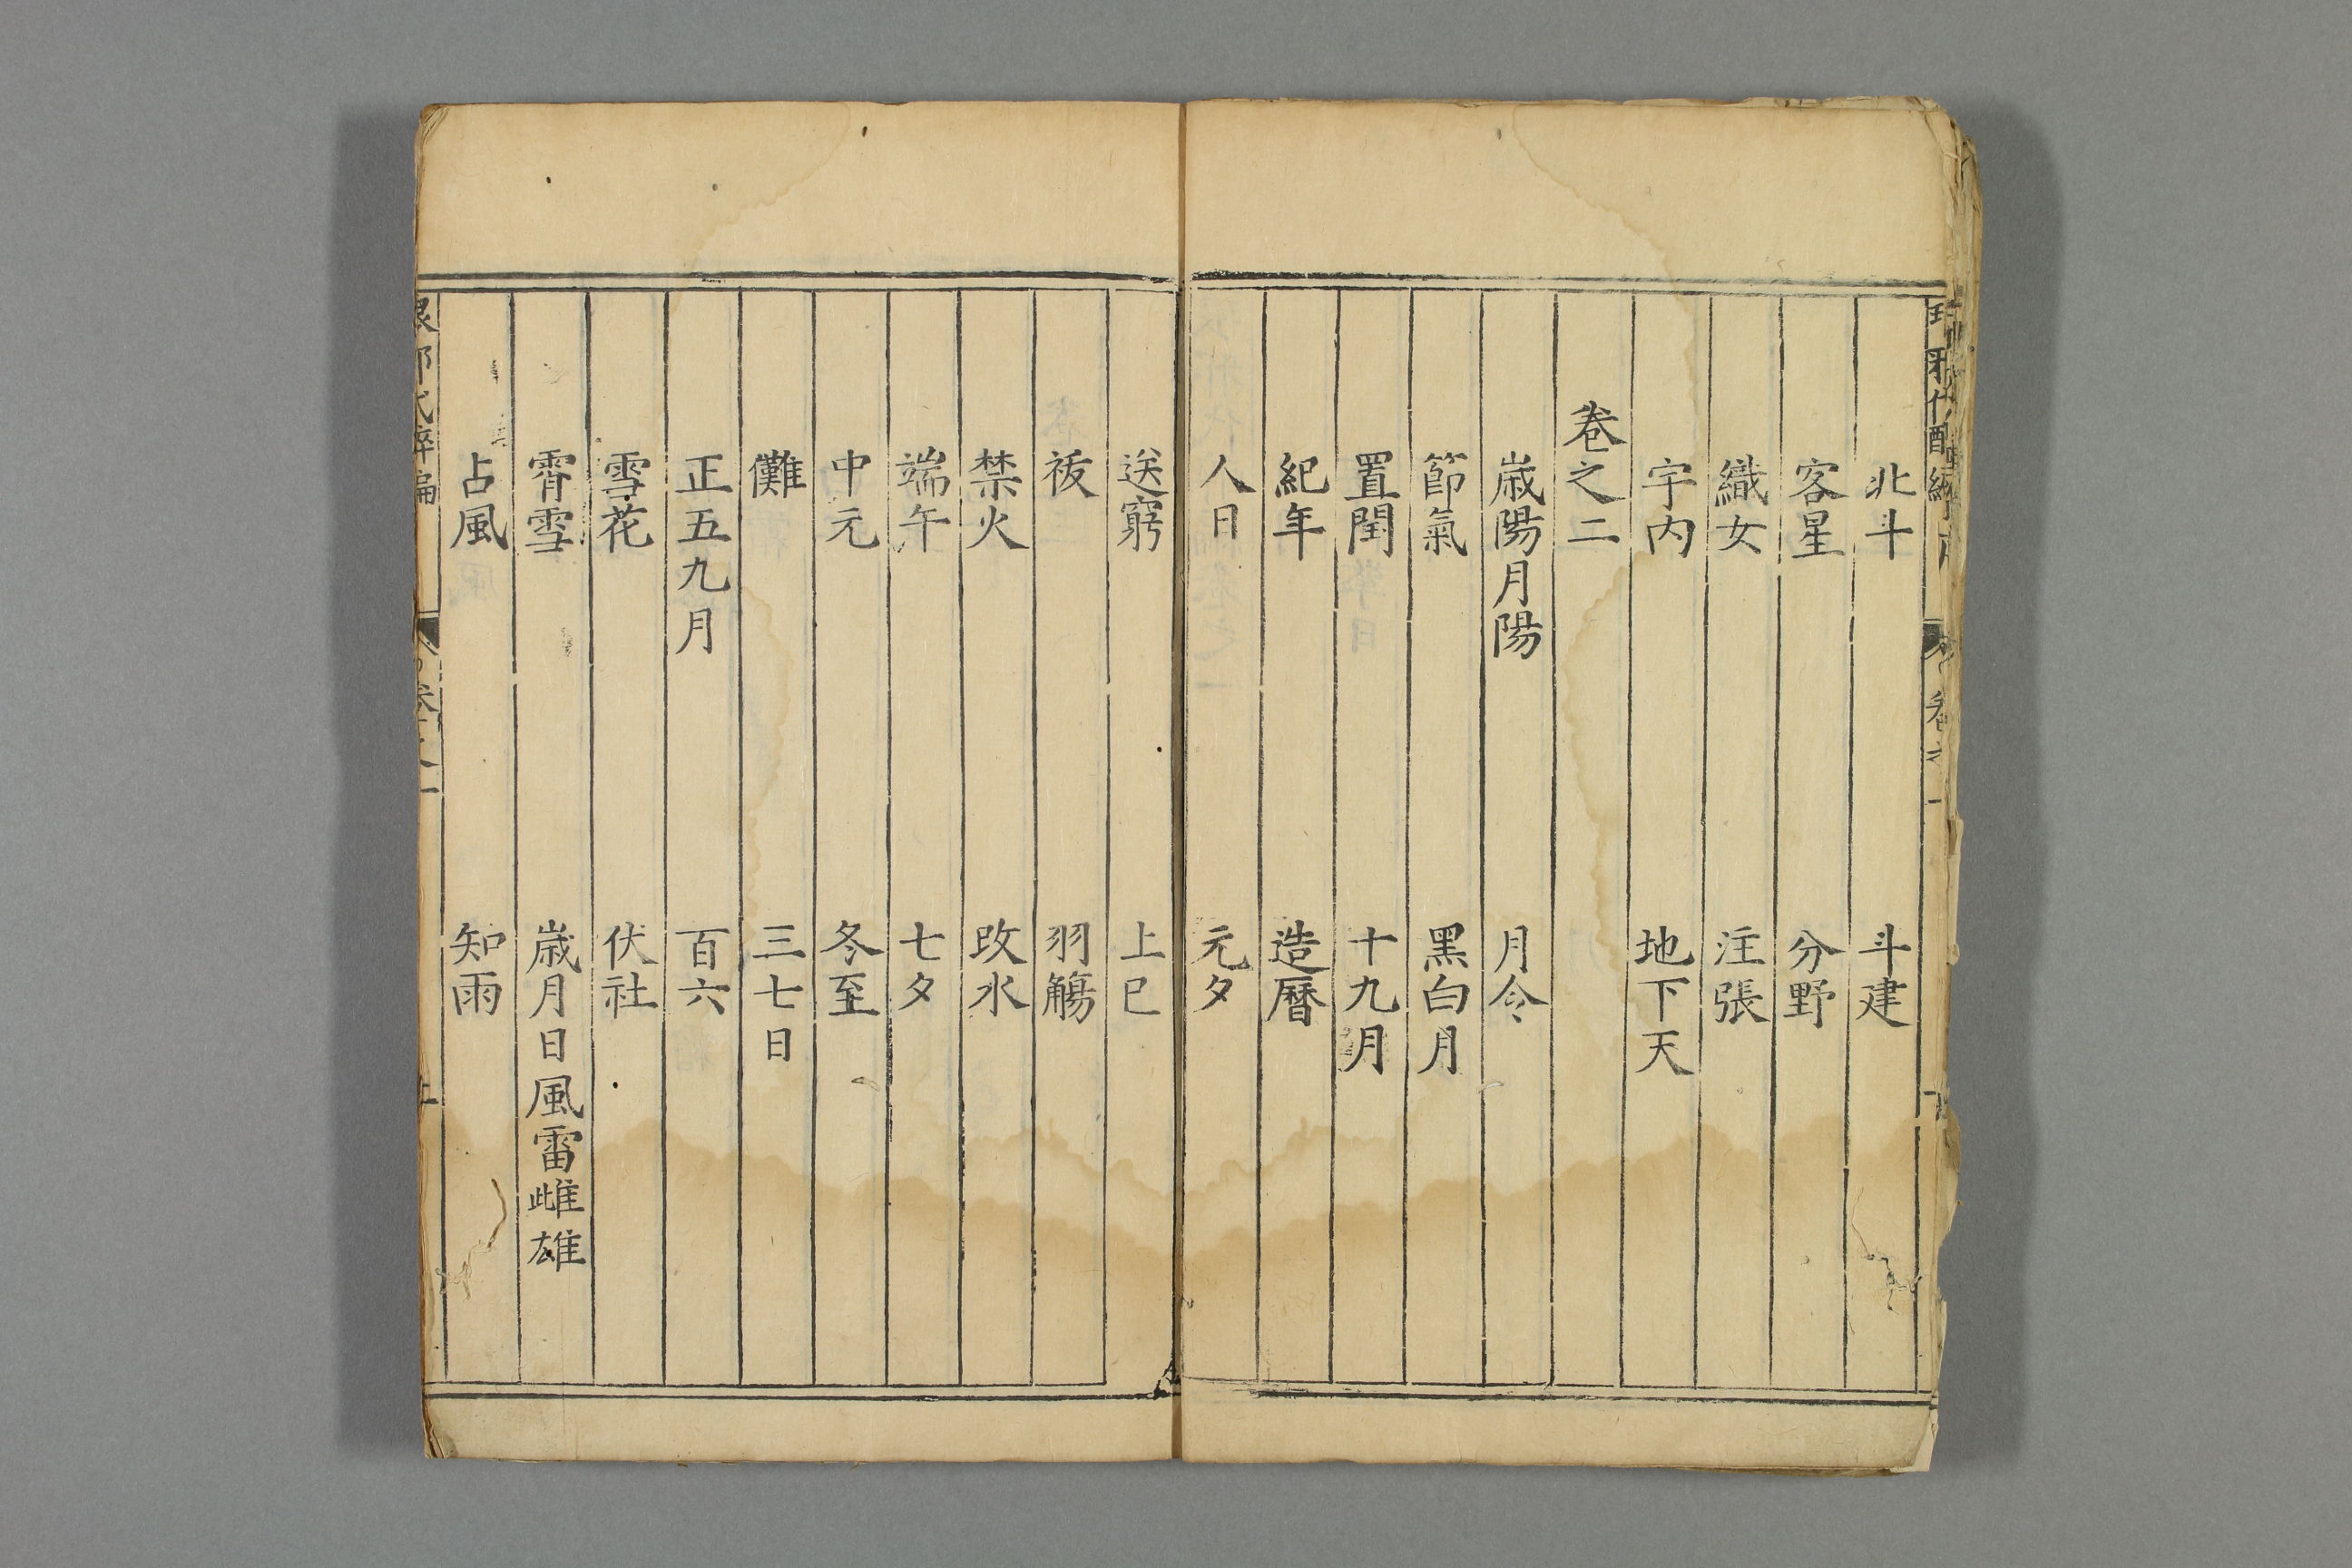 北斗　斗建
客星　分野
織女　注張
宇內　地下天
卷之二
歳陽月陽　月令
節氣　黑白月
置閏　十九月
紀年　造曆
人日　元夕
送窮　上巳
祓　羽觴
禁火　改水
端午　七夕
中元　冬至
儺　三七日
正五九月　百六
雪花　伏社
霄雪　歳月日風雷雌雄
占風　知雨